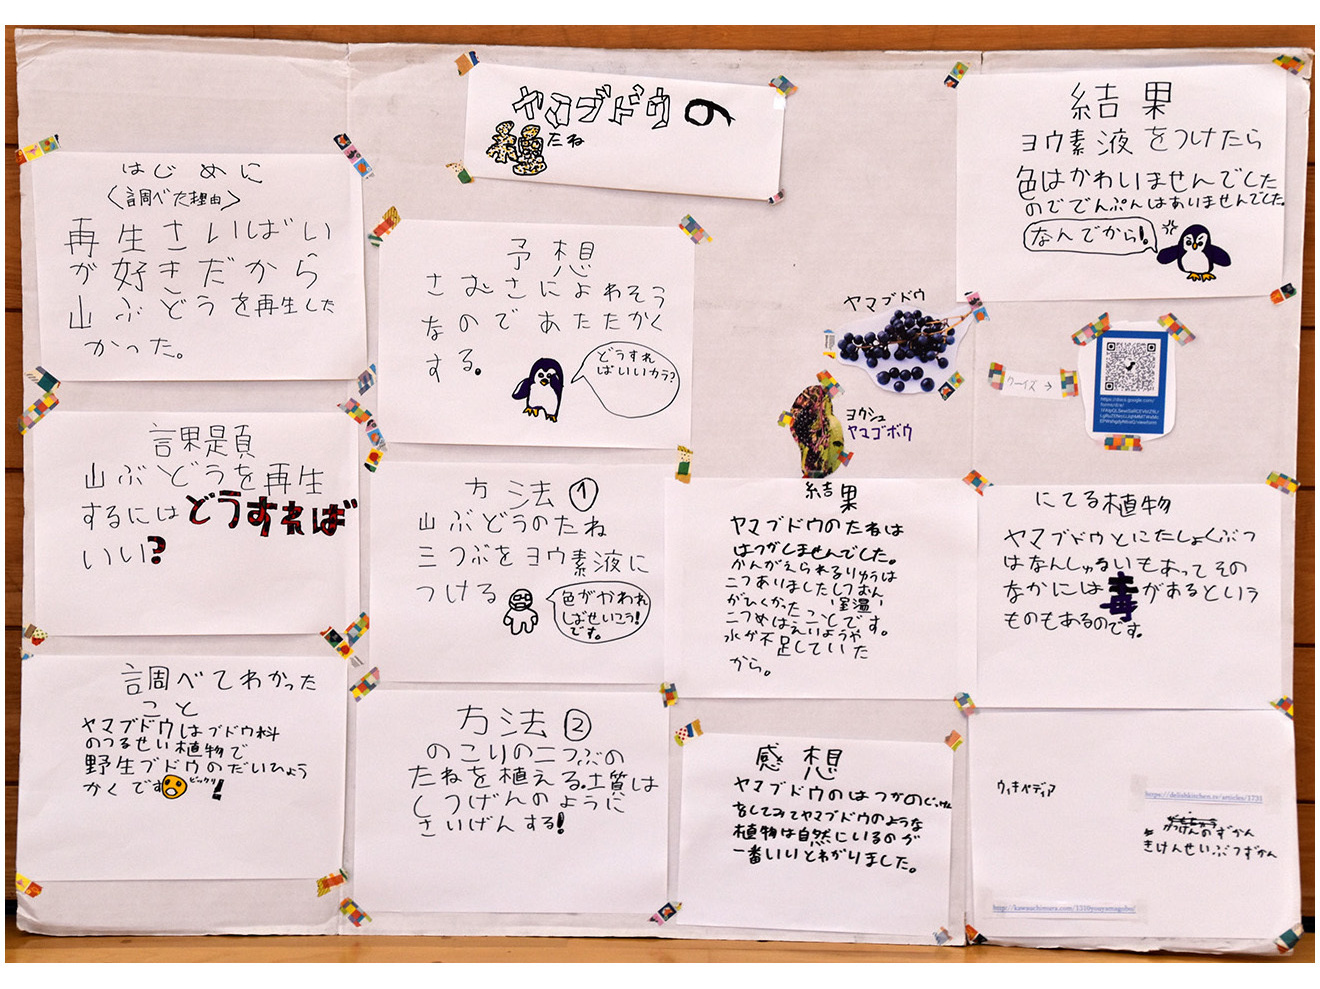 ヤマブドウの
種たね
はじめに
〈調べた理由〉
再生さいばい
が好きだから
山ぶどうを再生した
かった。
課題
山ぶどうを再生
するにはどうすれば
いい?
調べてわかった
こと
ヤマブドウはブドウ科
のつるせい植物で
野生ブドウのだいひょう
かくです ビックリ!
予想
さむさによわそう
なのであたたかく
する。
どうすれ
ばいいカラ?
方法①
山ぶどうのたね
三つぶをヨウ素液に
つける
色がかわれ
ばせいこう!
です。
方法②
のこりの二つぶの
たねを植える。土質は
しつげんのように
さいげんする!
ヤマブドウ
ヨウシュ
ヤマゴボウ
結果
ヤマブドウのたねは
はつがしませんでした。
かんがえられるりゆうは
二つありましたしつおん
がひくかったことです。
(室温)
二つめはえいようや
水が不足していた
から。
感想
ヤマブドウのはつがの
をしてみてヤマブドウのような
植物は自然にいるのが
一番いいとわかりました。
結果
ヨウ素液をつけたら
色はかわいませんでした
のででんぷんはありませんでした。
なんでから!
クイズ→
https://docs.google.com/
にてる植物
ヤマブドウとにたしょくぶつ
はなんしゅるいもあってその
なかには毒があるという
ものもあるのです。
ウィキペディア
https://delishkitchen.tv/articles/1731
のずかん
きけんせいぶつずかん
http://kawauchimura.com/1310youyamagobo/